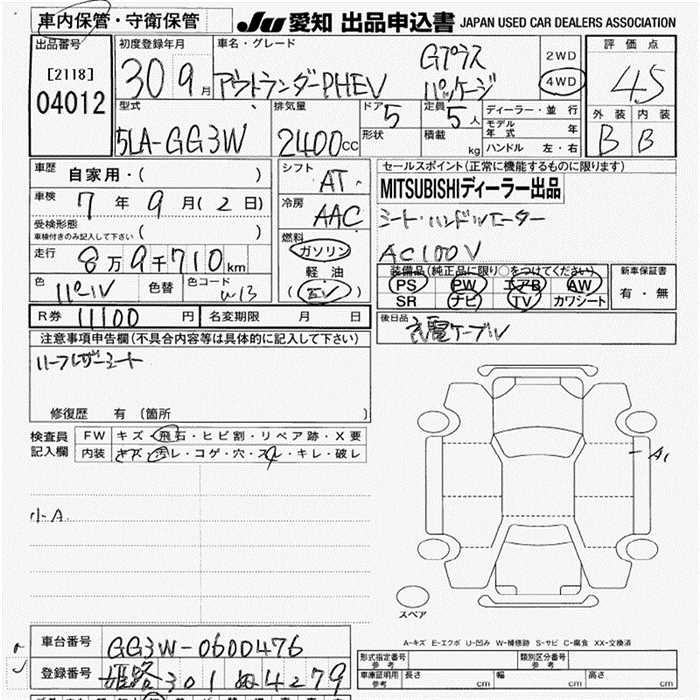 車内保管・守衛保管 JU 愛知 出品申込書 JAPAN USED CAR DEALERS ASSOCIATION
出品番号 初度登録年月 車名・グレード 評価点
[2118] 04012 30 9月 アウトランダーPHEV Gプラス パッケージ 2WD 4WD 4.5
型式 排気量 ドア 定員 ディーラー・並行 外装 内装
5LA-GG3W 2400cc 5 5人 モデル年式 年 B B
形状 積載 kg ハンドル 左・右
車歴 自家用・( ) シフト AT セールスポイント(正常に機能するものに限ります)
車検 7年9月(2日) 冷房 AAC MITSUBISHIディーラー出品
受検形態 車検付きのみ記入して下さい ( ) シート・ハンドルヒーター
走行 8万9千710km 燃料 ガソリン 軽油 (EV) AC100V
色 パール 色替 色コード W13 装備品(純正品に限り○をつけてください) 新車保証書
PS PW エアB AW 有・無
SR ナビ TV カワシート
R券 11100円 名変期限 月 日 後日品 充電ケーブル
注意事項申告欄(不具合内容等は具体的に記入して下さい)
ハーフレザーシート
修復歴 有 (箇所 )
検査員記入欄 FW キズ・飛石・ヒビ割・リペア跡・X要
内装 キズ・汚レ・コゲ・穴・スレ・キレ・破レ
A1
小A
スペア
A-キズ E-エクボ U-凹み W-補修跡 S-サビ C-腐食 XX-交換済
車台番号 GG3W-0600476
登録番号 姫路 301 ぬ 4279
形式指定番号 参考 類別区分番号 参考
車庫証明用 参考 長さ cm 幅 cm 高さ cm